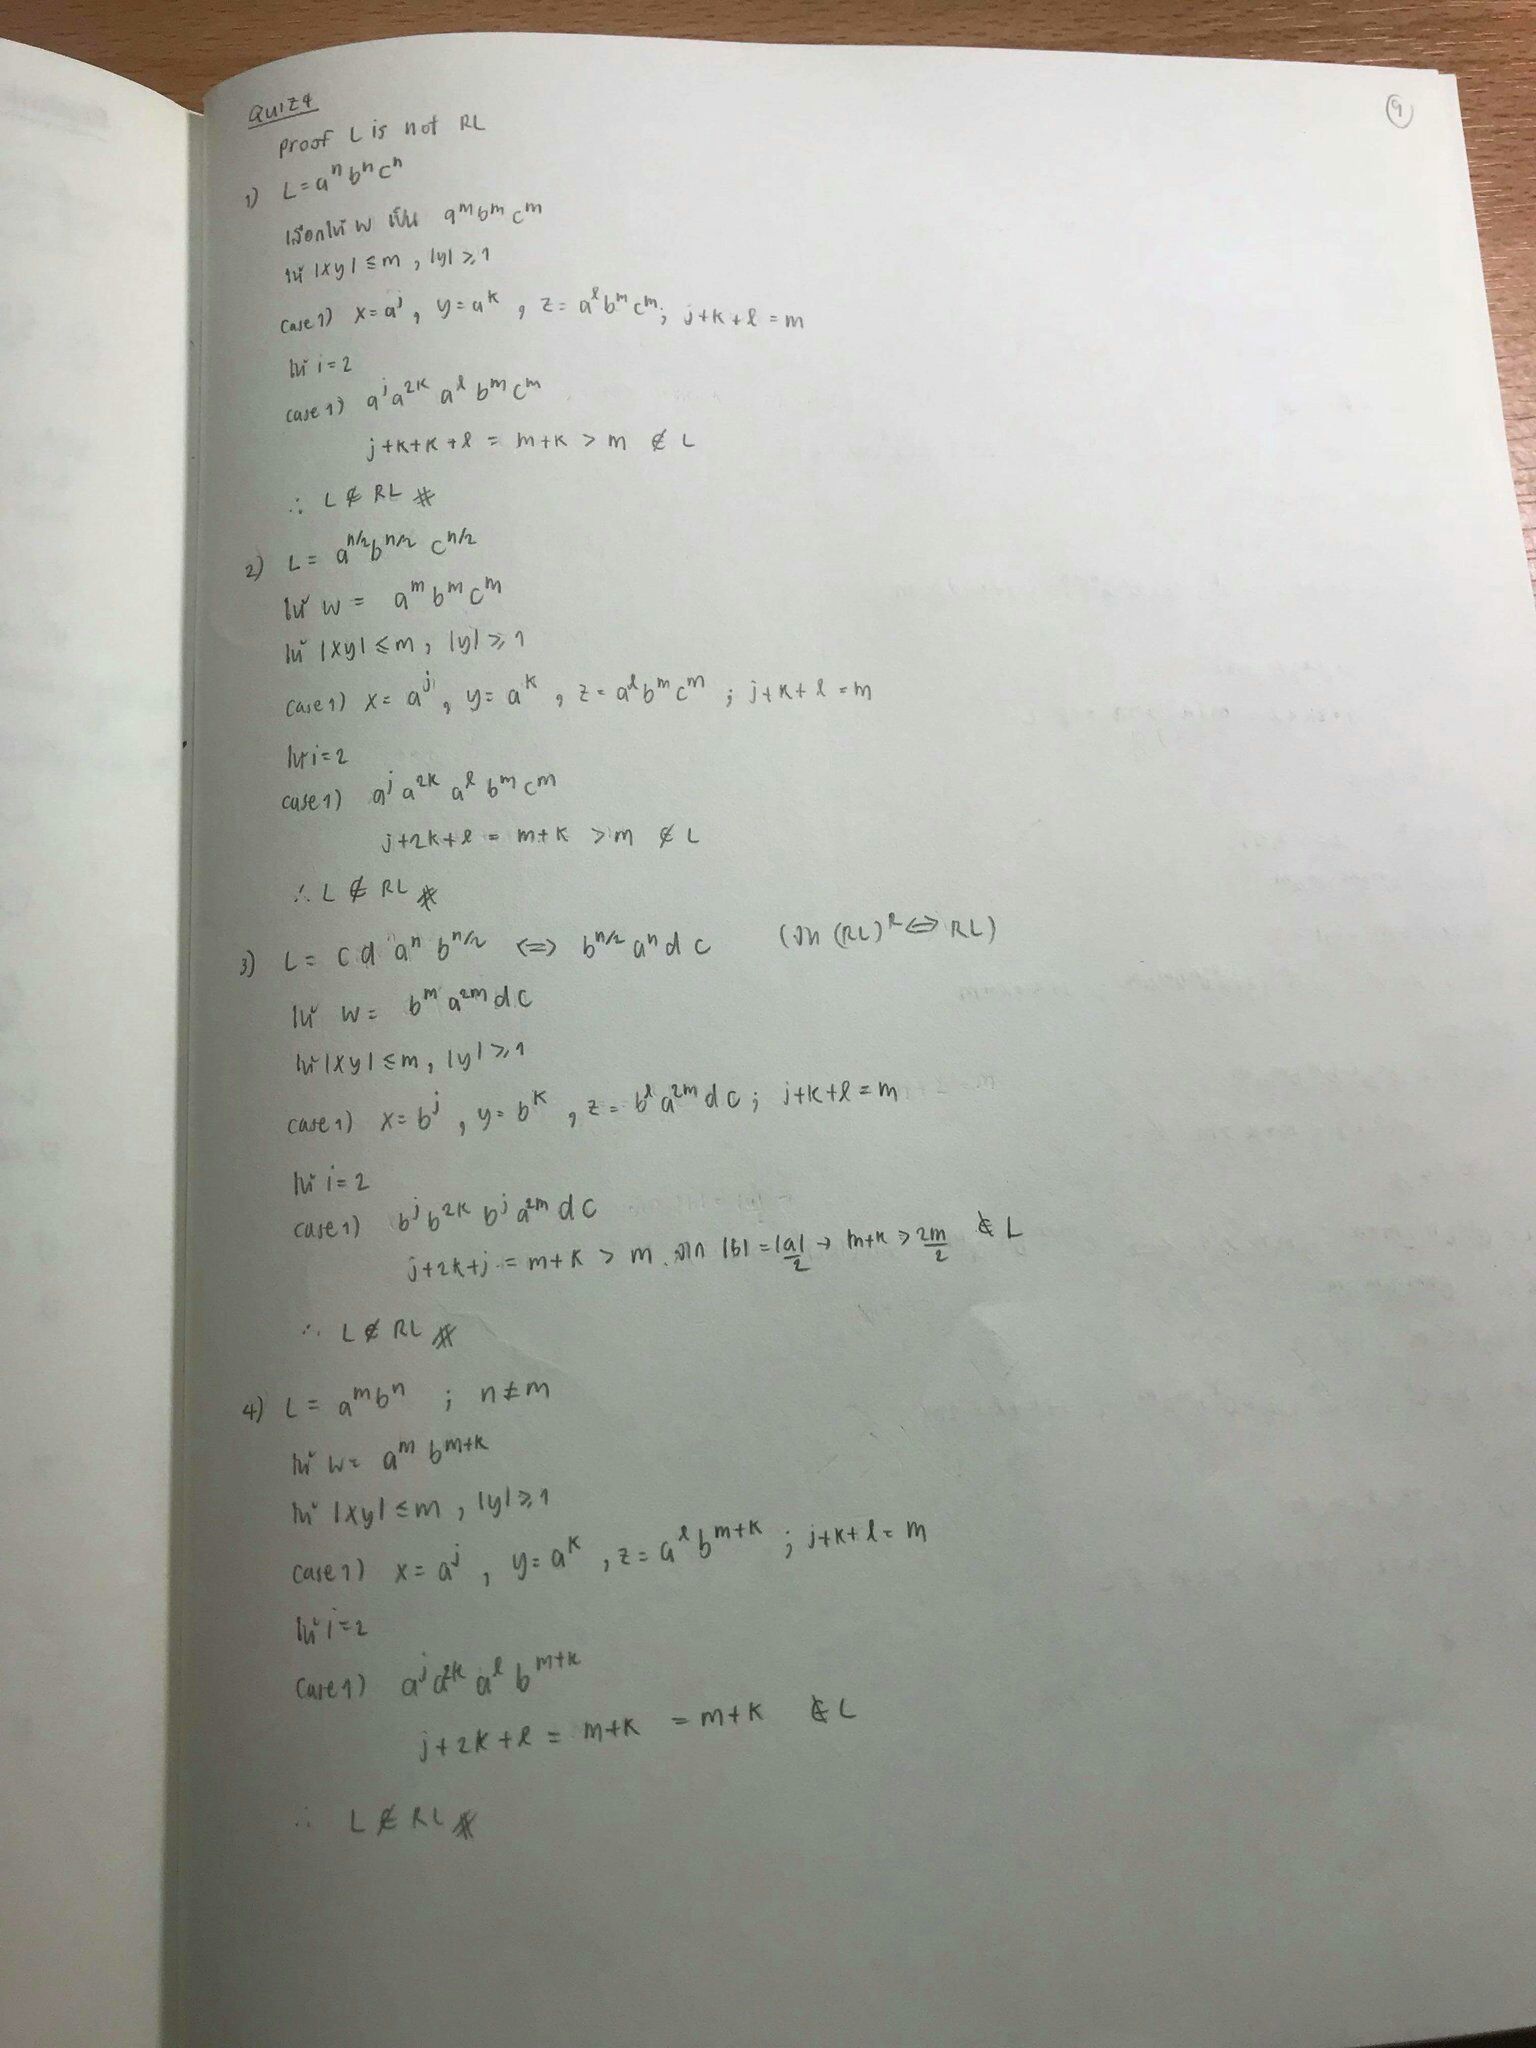 Quiz 4
9
Proof L is not RL
1) L = aⁿ bⁿ cⁿ
เลือกให้ w เป็น aᵐ bᵐ cᵐ
ให้ |xy| ≤ m , |y| ≥ 1
case 1) x = aʲ , y = aᵏ , z = aˡ bᵐ cᵐ ; j+k+l = m
ให้ i = 2
case 1) aʲ a²ᵏ aˡ bᵐ cᵐ
j+k+k+l = m+k > m ∉ L
∴ L ∉ RL #
2) L = a^(n/2) b^(n/2) c^(n/2)
ให้ w = aᵐ bᵐ cᵐ
ให้ |xy| ≤ m , |y| ≥ 1
case 1) x = aʲ , y = aᵏ , z = aˡ bᵐ cᵐ ; j+k+l = m
ให้ i = 2
case 1) aʲ a²ᵏ aˡ bᵐ cᵐ
j+2k+l = m+k > m ∉ L
∴ L ∉ RL #
3) L = c d aⁿ b^(n/2) <=> b^(n/2) aⁿ d c (จาก (RL)ᴿ <=> RL)
ให้ w = bᵐ a²ᵐ d c
ให้ |xy| ≤ m , |y| ≥ 1
case 1) x = bʲ , y = bᵏ , z = bˡ a²ᵐ d c ; j+k+l = m
ให้ i = 2
case 1) bʲ b²ᵏ bʲ a²ᵐ d c
j+2k+j = m+k > m จาก |b| = |a|/2 → m+k > 2m/2 ∉ L
∴ L ∉ RL #
4) L = aᵐ bⁿ ; n ≠ m
ให้ w = aᵐ bᵐ⁺ᵏ
ให้ |xy| ≤ m , |y| ≥ 1
case 1) x = aʲ , y = aᵏ , z = aˡ bᵐ⁺ᵏ ; j+k+l = m
ให้ i = 2
case 1) aʲ a²ᵏ aˡ bᵐ⁺ᵏ
j+2k+l = m+k = m+k ∉ L
∴ L ∉ RL #